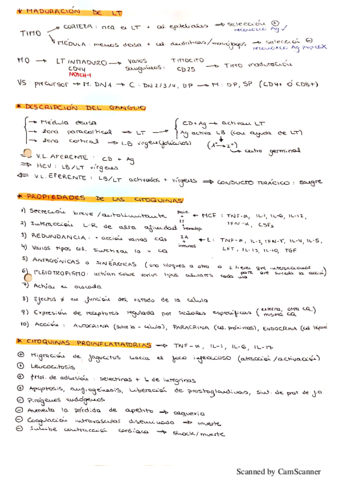 * MADURACIÓN DE LT
CORTEZA: rica en LT + cél epiteliales → selección ⊕
TIMO
MÉDULA: menos densa + cél dendríticas/macrófagos → selección ⊖
MO → LT INMADURO → vasos sanguíneos → TIMOCITO → TIMO maduración
CD44 CD25
NOTCH-1
VS precursor → M. DN1 → C: DN2/3/4, DP → M: DP, SP (CD4+ o CD8+)
* DESCRIPCIÓN DEL GANGLIO
→ Médula densa
→ zona paracortical → LT
→ zona cortical → LB vírgen (folículos)
CD+Ag → activan LT
Ag activa LB (con ayuda de LT)
centro germinal
V.L. AFERENTE: CD + Ag
HEV: LB/LT vírgenes
V.L. EFERENTE: LB/LT activados + vírgenes → CONDUCTO TORÁCICO: sangre
* PROPIEDADES DE LAS CITOQUINAS
1) Secreción breve / autolimitante
MCF: TNF-α, IL-1, IL-6, IL-12,
IFN-α, CSFs
2) Interacción L-R de alta afinidad
3) REDUNDANCIA: = acción varias CQs
L: TNF-α, IL-2, IFN-γ, IL-4, IL-5,
LFT, IL-12, IL-10, TGF
4) Varios tipos cél. sintetizan la = CQ
5) ANTAGÓNICAS o SINÉRGICAS
6) PLEIOTROPISMO: actúan sobre varios tipos celulares
7) Actúan en cascada
8) Efecto ≠ en función del estado de la célula
9) Expresión de receptores regulada por señales específicas
10) Acción: AUTOCRINA (sobre la = célula), PARACRINA (cél. próximas), ENDOCRINA (cél. lejanas)
* CITOQUINAS PROINFLAMATORIAS → TNF-α, IL-1, IL-6, IL-12
Migración de fagocitos hacia el foco infeccioso (atracción/activación)
Leucocitosis
Mol de adhesión: selectinas + L de integrinas
Apoptosis, angiogénesis, liberación de prostaglandinas, sínt. de prot de fa
Pirógenos endógenos
Aumenta la pérdida de apetito → caquexia
Coagulación intravascular diseminada → muerte
Inhibe contracción cardíaca → shock/muerte
Scanned by CamScanner